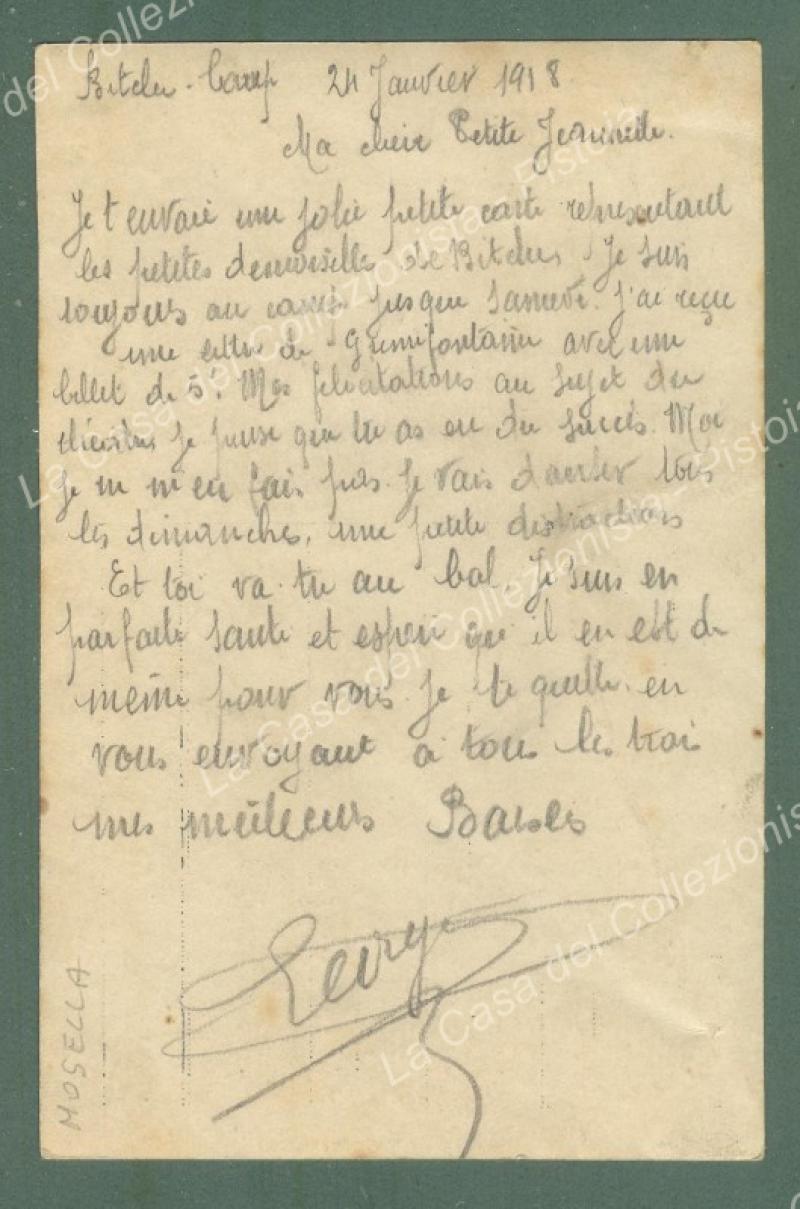 Bitche-Camp 24 Janvier 1918
Ma cheir Petite Jeannette.
Je t envoie une jolie petite carte représentant
les petites demoiselle de Bitche. Je suis
toujours au camp jusque samedi. J'ai reçu
une lettre de avec une
billet de 5f. Mes félicitations au sujet du
je pense que tu as eu du succès. Moi
je ne m'en fais pas. Je vais danser tous
les dimanches, une petite distractions
Et toi va-tu au bal. Je suis en
parfaite santé et espère que il en est de
même pour vous je te quitte en
vous envoyant a tous les trois
mes meilleurs Baises
George
MOSELLA
La Casa del Collezionista - Pistoia